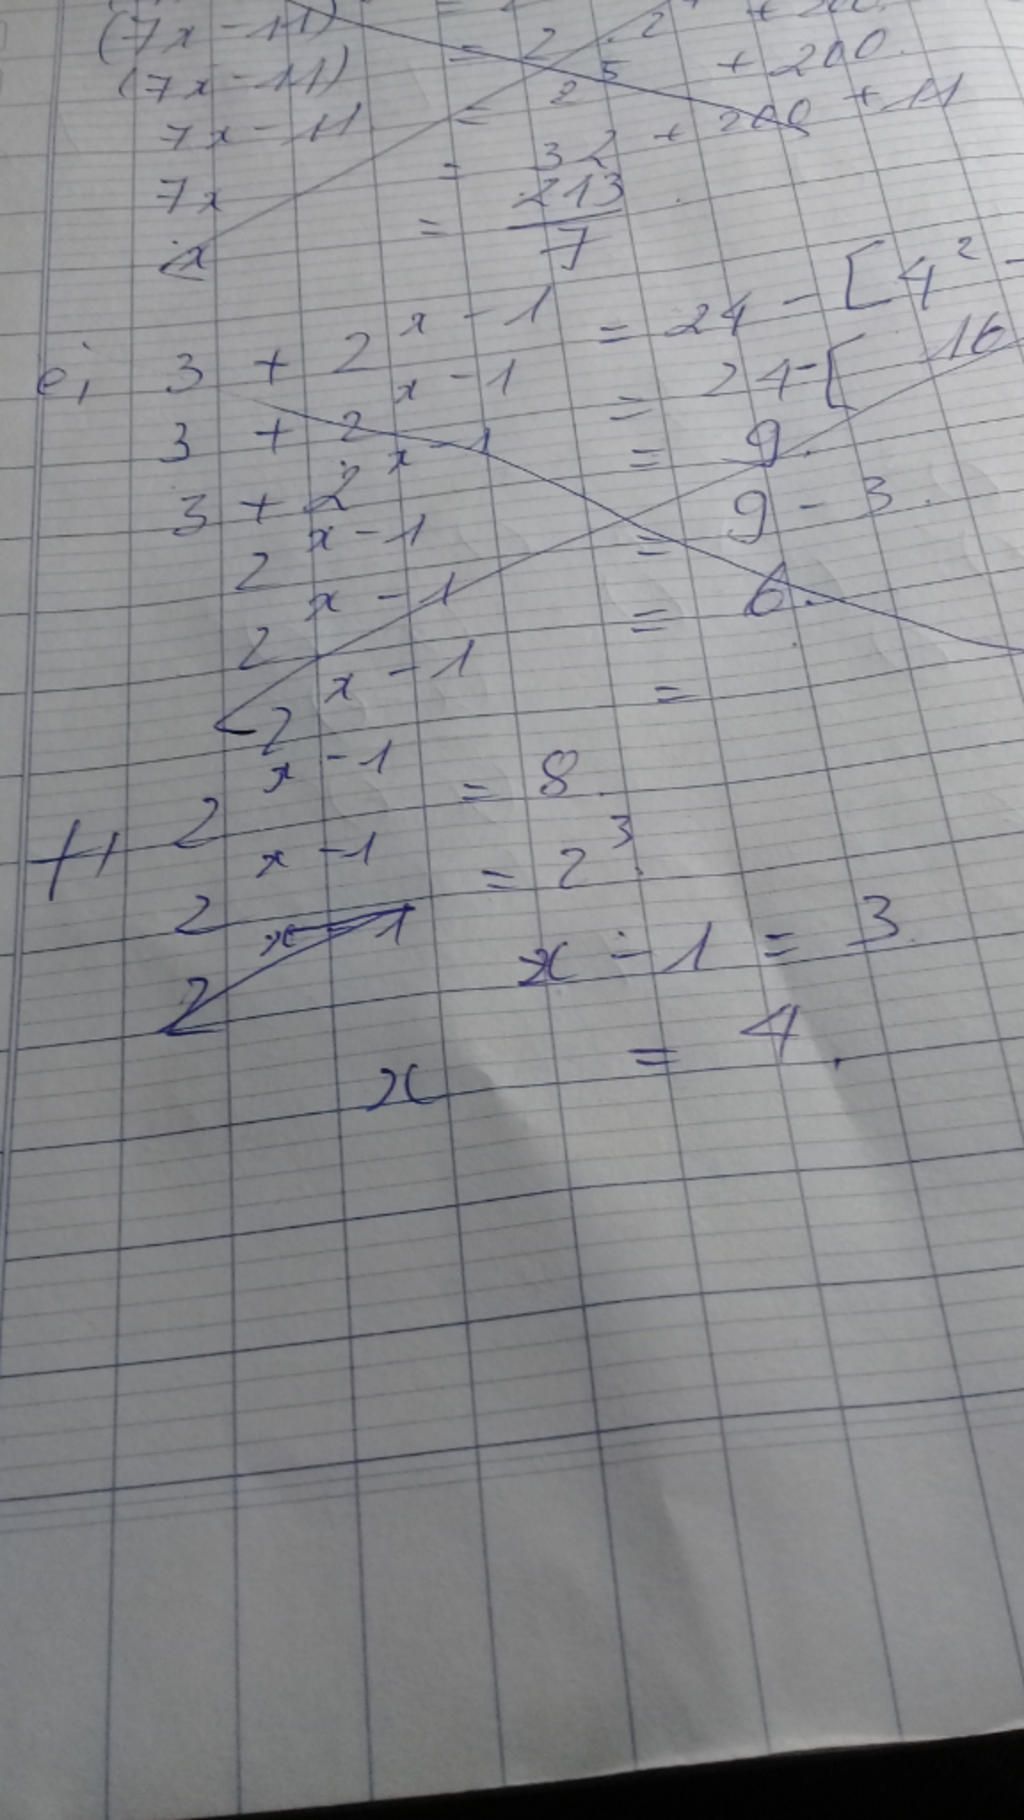 (7x - 11) = 2 . 2 + 200.
(7x - 11) = 2⁵ + 200.
7x - 11 = 32 + 200 + 11
7x = 213/7
x
e, 3 + 2^(x - 1) = 24 - [4² -
3 + 2^(x - 1) = 24 - [ 16
3 + 2^(x - 1) = 9.
2^(x - 1) = 9 - 3.
2^(x - 1) = 6.
2^(x - 1) =
2^(x - 1) = 8.
2^(x - 1) = 2³.
2^(x - 1) x - 1 = 3.
x = 4.